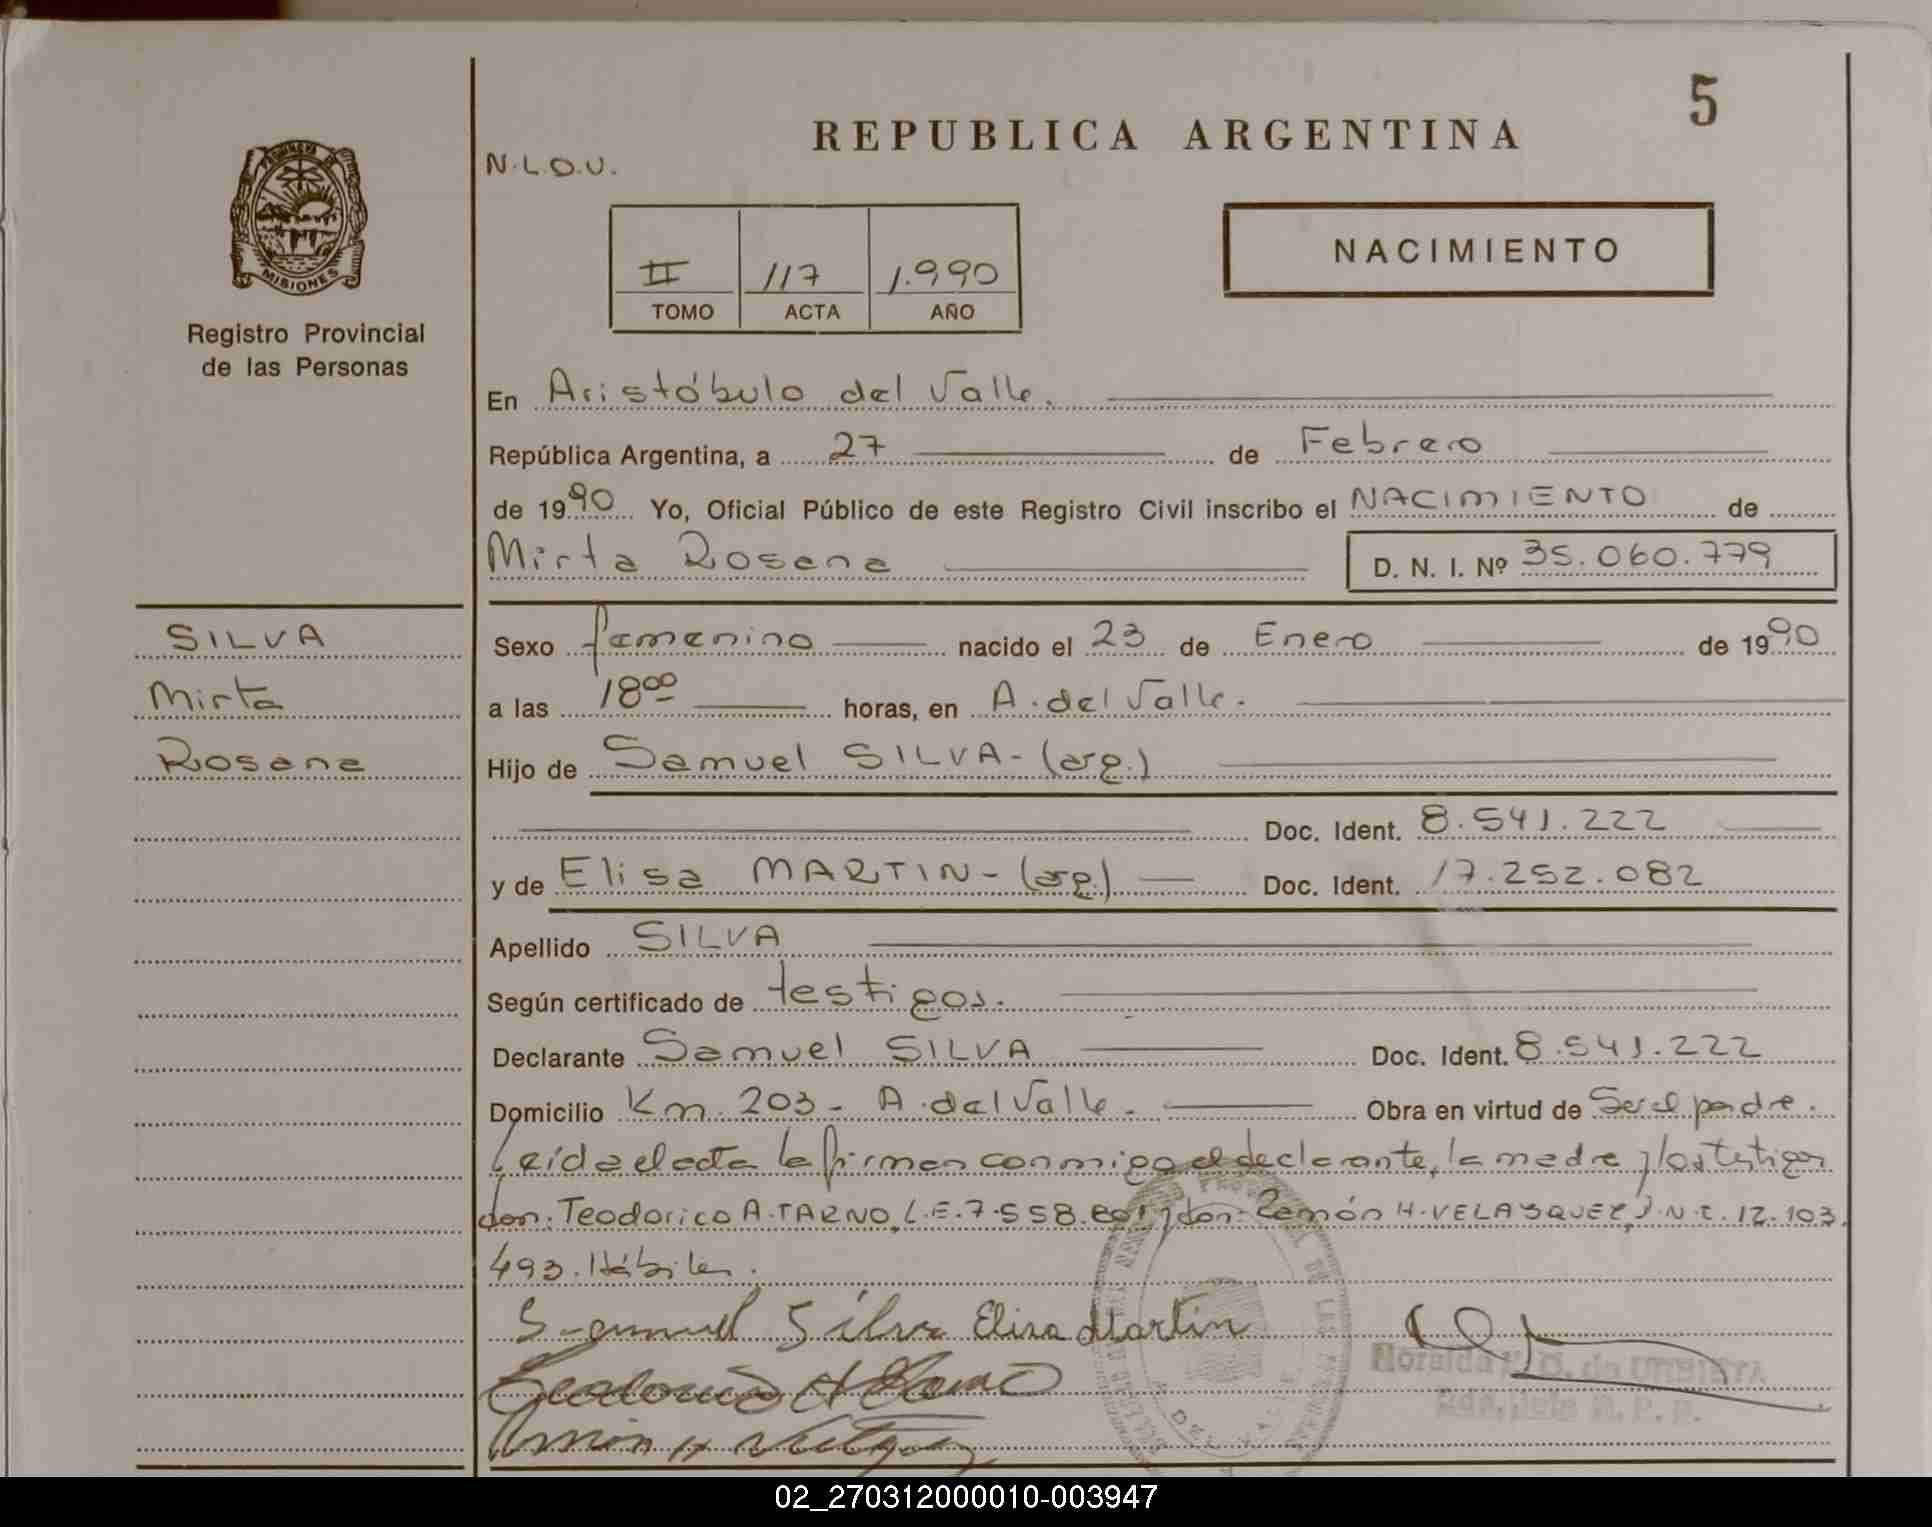 5
REPUBLICA ARGENTINA
N.L.O.U.
PROVINCIA DE
MISIONES
Registro Provincial
de las Personas
II 117 1.990
TOMO ACTA AÑO
NACIMIENTO
En Aristóbulo del Valle.
República Argentina, a 27 de Febrero
de 1990 Yo, Oficial Público de este Registro Civil inscribo el NACIMIENTO de
Mirta Rosana D. N. I. Nº 35.060.779
SILVA
Mirta
Rosana
Sexo femenino nacido el 23 de Enero de 1990
a las 18 00 horas, en A. del Valle.
Hijo de Samuel SILVA- (arg.)
Doc. Ident. 8.541.222
y de Elisa MARTIN- (arg.) Doc. Ident. 17.252.082
Apellido SILVA
Según certificado de testigos.
Declarante Samuel SILVA Doc. Ident. 8.541.222
Domicilio Km. 203- A. del Valle. Obra en virtud de Ser el padre.
Leída el acta la firman conmigo el declarante, la madre y los testigos
don: Teodorico A. TARNO, L.E. 7.558.801 y don: Ramón H. VELASQUEZ, D.N.I. 12.103.
493. Hábiles.
Samuel Silva Elisa Martin
Ramón H
de URBIETA
R. P. P.
DEL VALLE
02_270312000010-003947